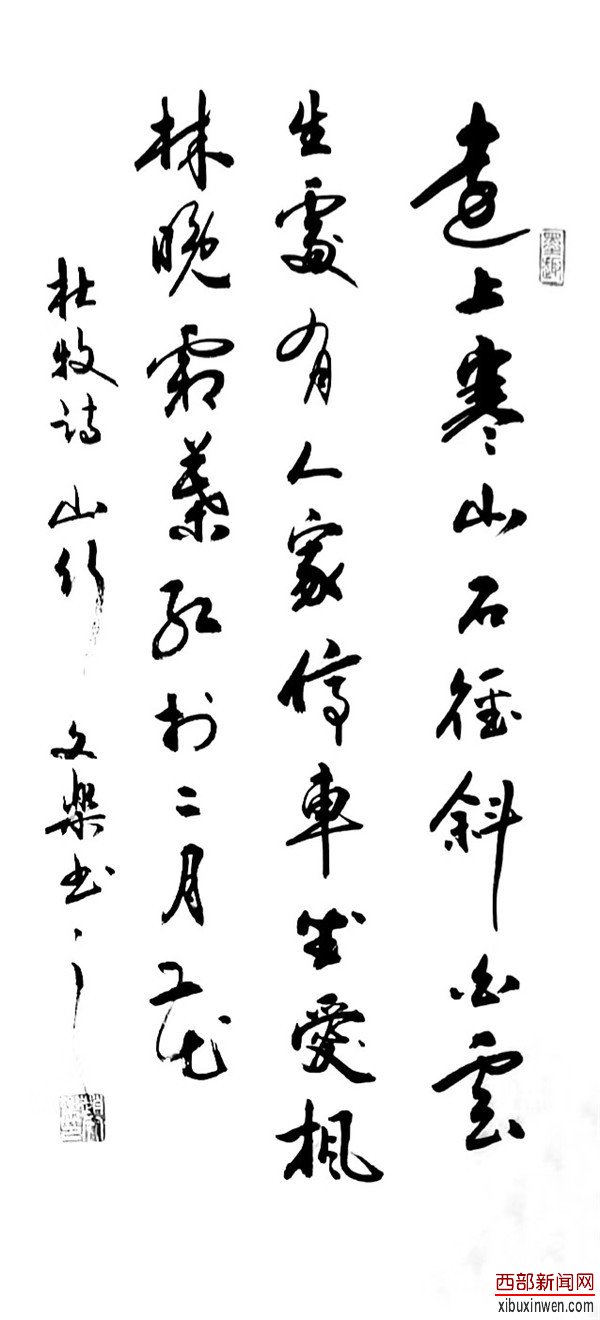 遠上寒山石徑斜白雲
生處有人家停車坐愛楓
林晚霜葉紅於二月花
杜牧詩山行 文樂书之
西部新闻网
xibuxinwen.com